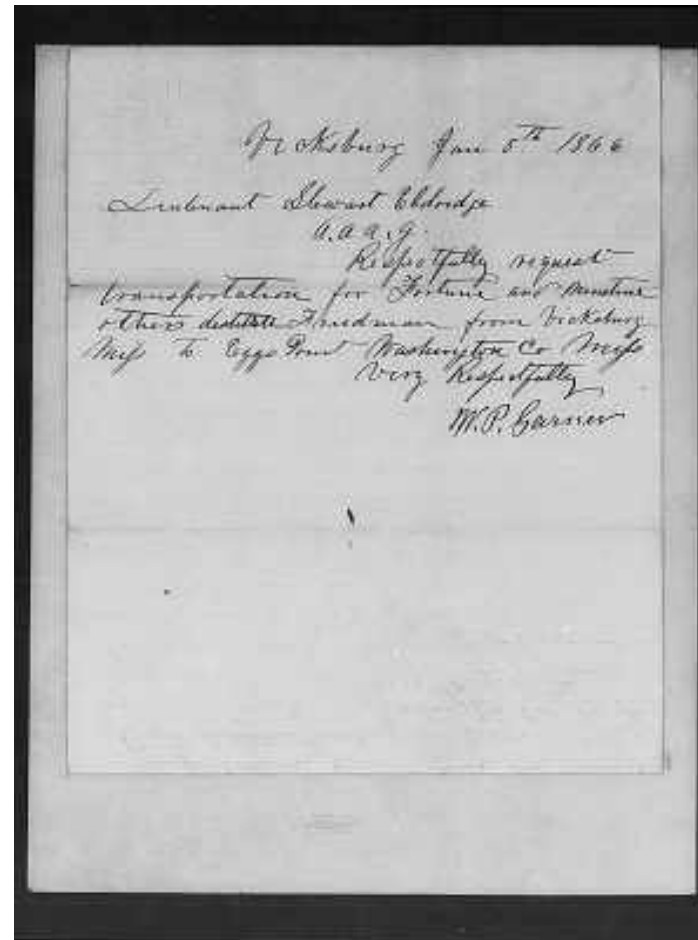 Vicksburg Jan 5th 1866
Lieutenant Stewart Eldridge
A.A.A.G.
Respectfully request
transportation for Fortune and nineteen
others destitute Freedman from Vicksburg
Miss to Eggs Point Washington Co Miss
Very Respectfully
W.P. Carner